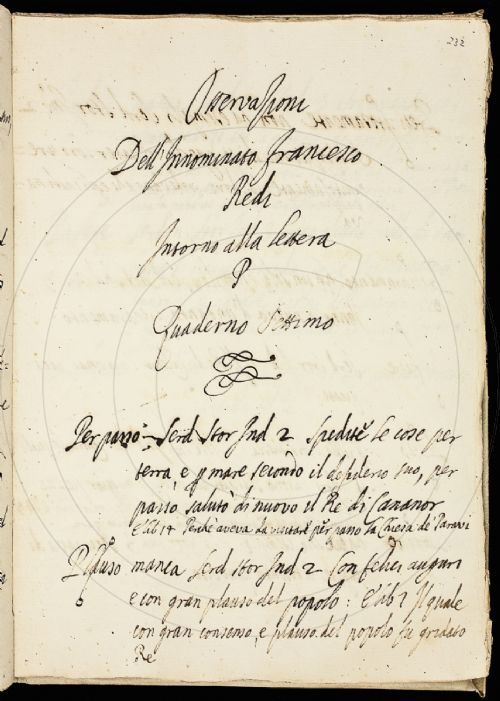 232
Osservazioni
Dell'Innominato Francesco
Redi
Intorno alla lettera
P
Quaderno Settimo
Per passo Serd Stor Ind 2 spedite le cose per
terra, e p mare secondo il desiderio suo, per
passo salutò di nuovo il Re di Cananor
E lib 14 Perchè aveva da per passo la Chiesa de
Plauso manca Serd Stor Ind 2 Con felici auguri
e con gran plauso del popolo: E lib 7 Il quale
con gran consenso, e plauso del popolo fu gridato
Re